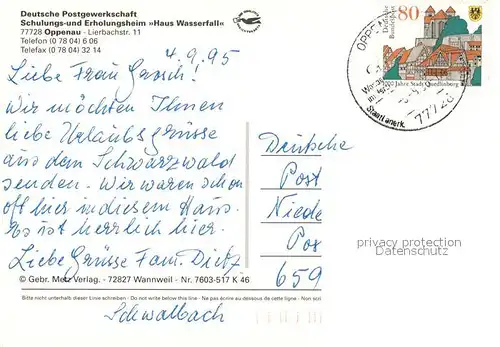 Deutsche Postgewerkschaft
Schulungs- und Erholungsheim »Haus Wasserfall«
77728 Oppenau - Lierbachstr. 11
Telefon (0 78 04) 6 06
Telefax (0 78 04) 32 14
4.9.95
Liebe Frau
wir möchten Ihnen
liebe Urlaubsgrüsse
aus dem Schwarzwald
senden. Wir waren schon
oft hier in diesem Haus.
Es ist herrlich hier.
Liebe Grüsse Fam. Dietz
© Gebr. Metz Verlag. - 72827 Wannweil - Nr. 7603-517 K 46
Bitte nicht unterhalb dieser Linie schreiben - Do not write below this line - Ne pas écrire au dessous de cette ligne - Non scri
Schwalbach
80
Deutsche
Bundespost
1000 Jahre Stadt Quedlinburg
OPPENAU
Staatl. anerk.
77728
Deutsche
Post
Niede
Post
659
privacy protection
Datenschutz